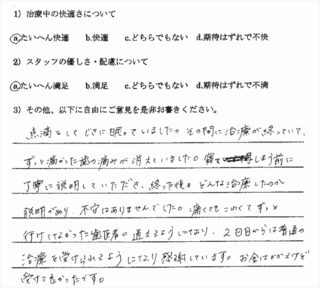 1）治療中の快適さについて
a.たいへん快適 b.快適 c.どちらでもない d.期待はずれで不快
2）スタッフの優しさ・配慮について
a.たいへん満足 b.満足 c.どちらでもない d.期待はずれで不満
3）その他、以下に自由にご意見を是非お書きください。
点滴をしてじきに眠っていました。その間に治療が終っていて、
ずっと痛かった歯の痛みが消えていました。寝てしまう前に
丁寧に説明していただき、終った後も どんな治療したのか
説明があり、不安はありませんでした。痛くてもこわくてずっと
行けてなかった歯医者に通えるようになり、2日目からは普通の
治療を受けられるようになり感謝しています。お金はかかるけど
受けてよかったです。